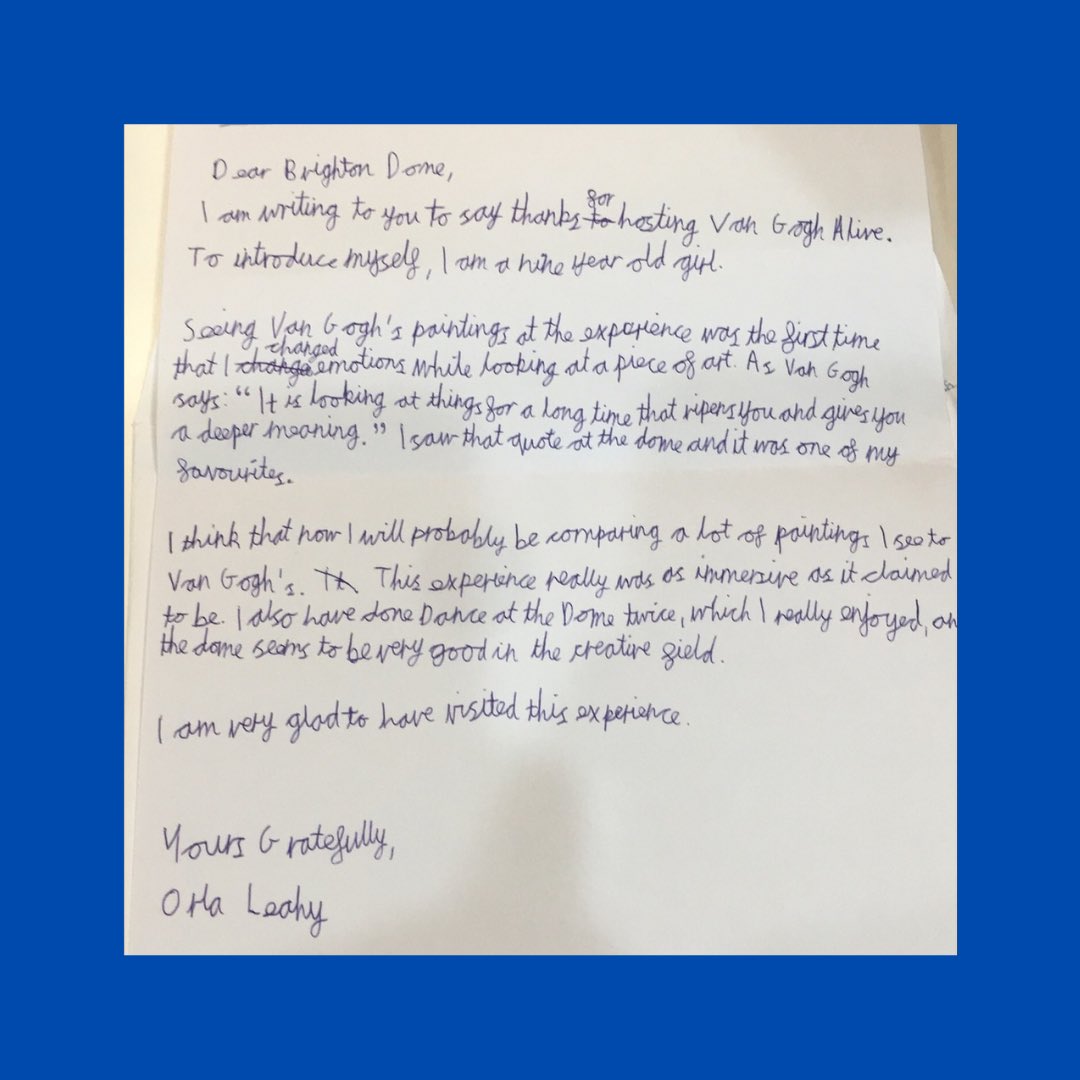 Dear Brighton Dome,
I am writing to you to say thanks for hosting Van Gogh Alive.
To introduce myself, I am a nine year old girl.
Seeing Van Gogh's paintings at the experience was the first time
that I changed emotions while looking at a piece of art. As Van Gogh
says: "It is looking at things for a long time that ripens you and gives you
a deeper meaning." I saw that quote at the dome and it was one of my
favourites.
I think that now I will probably be comparing a lot of paintings I see to
Van Gogh's. This experience really was as immersive as it claimed
to be. I also have done Dance at the Dome twice, which I really enjoyed, an
the dome seems to be very good in the creative field.
I am very glad to have visited this experience.
Yours Gratefully,
Orla Leahy